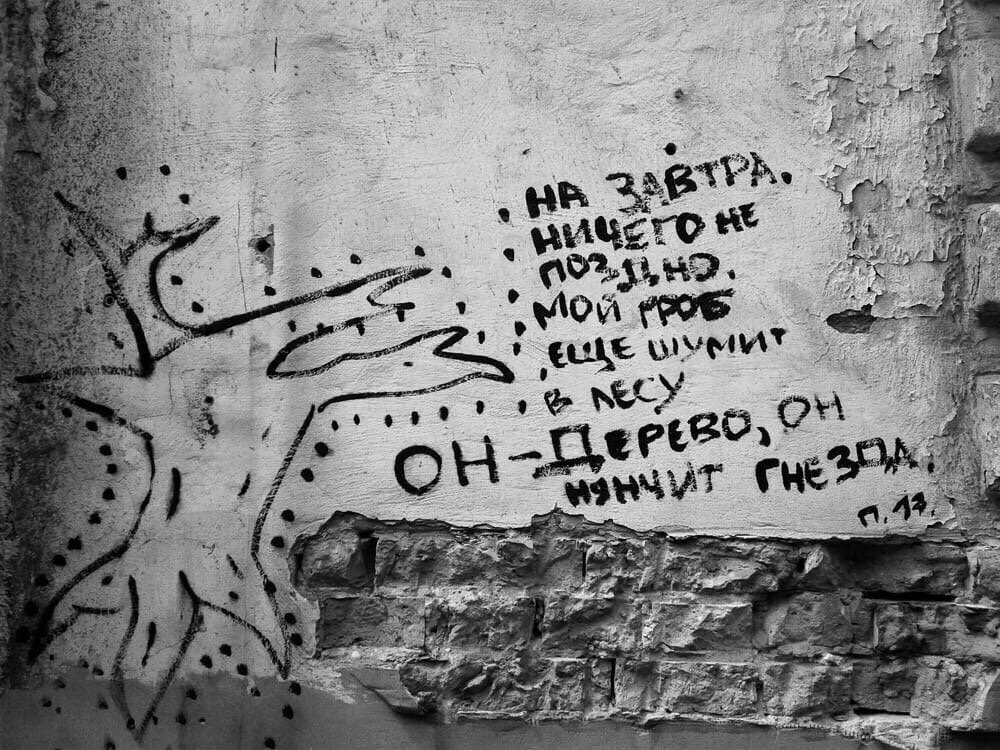 НА ЗАВТРА.
НИЧЕГО НЕ
ПОЗДНО.
МОЙ ГРОБ
ЕЩЕ ШУМИТ
В ЛЕСУ
ОН - ДЕРЕВО, ОН
НЯНЧИТ ГНЕЗДА.
П. 17.